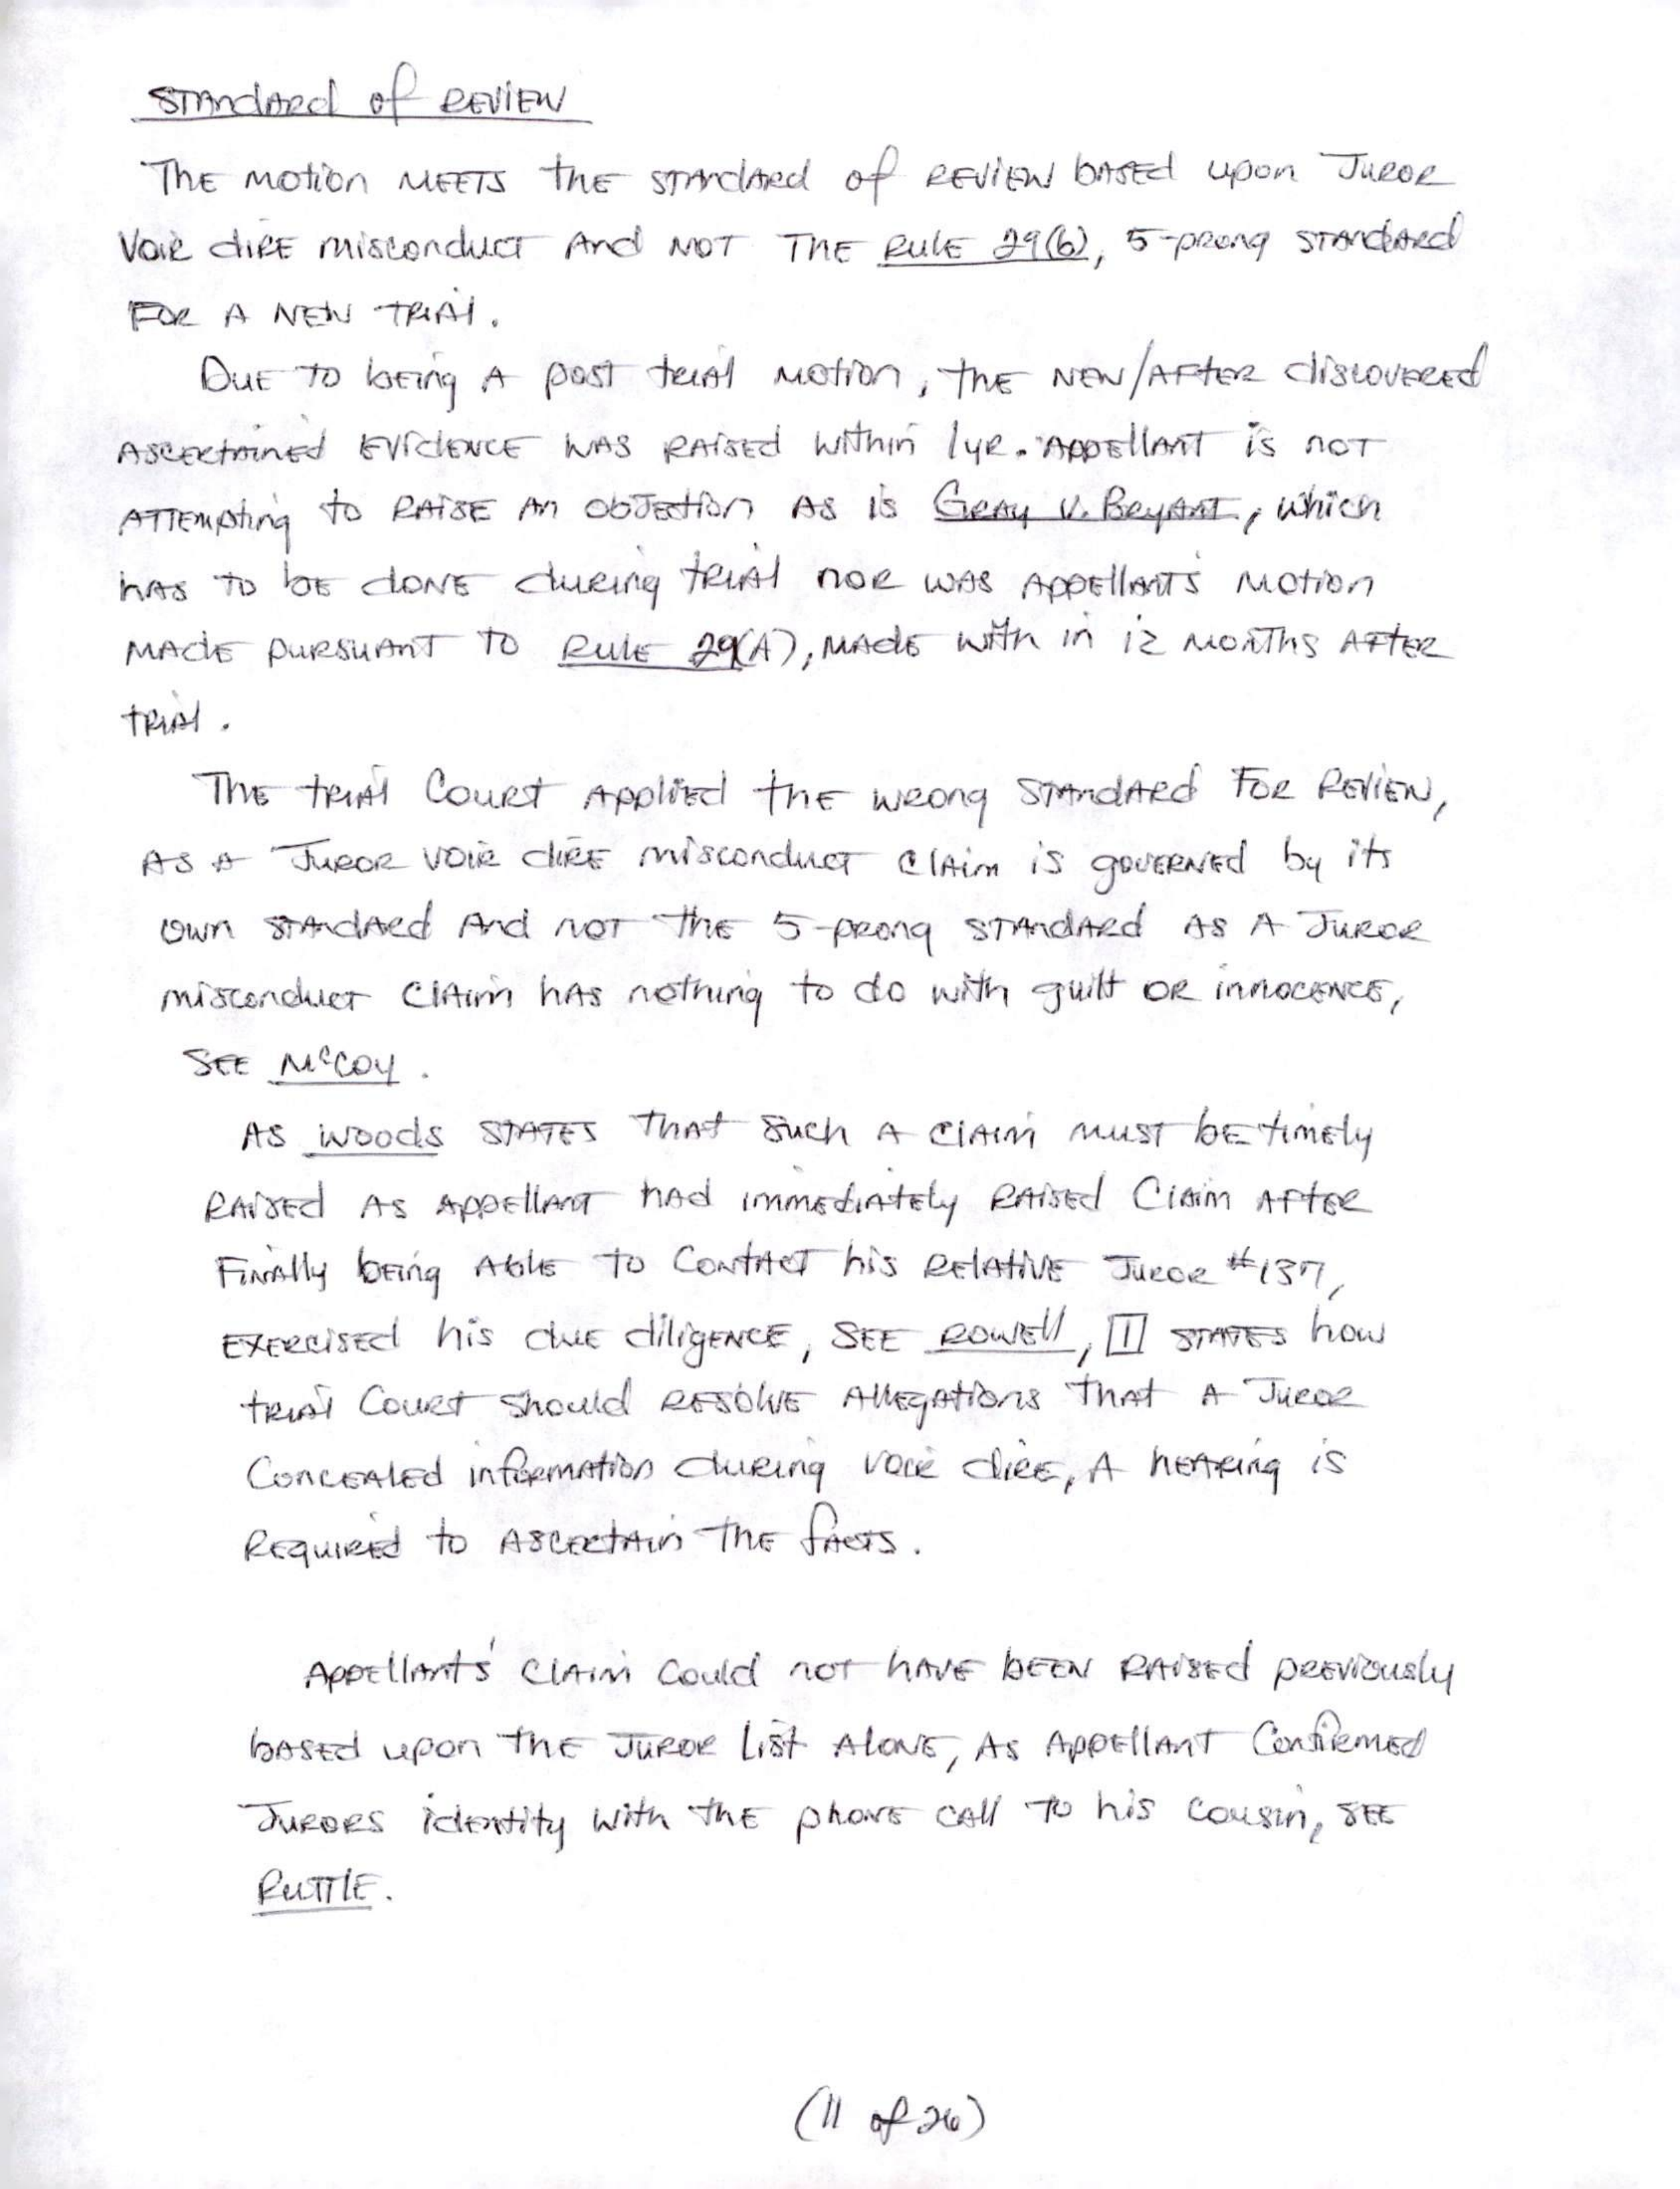 Standard of Review
The motion meets the standard of review based upon Juror
Voir dire misconduct and not the Rule 29(b), 5-prong standard
for a new trial.
Due to being a post trial motion, the new/after discovered
ascertained evidence was raised within 1yr. Appellant is not
attempting to raise an objection as is Gray v. Bryant, which
has to be done during trial nor was appellant's motion
made pursuant to Rule 29(A), made with in 12 months after
trial.
The trial Court applied the wrong standard for review,
as a Juror voir dire misconduct claim is governed by its
own standard and not the 5-prong standard as a Juror
misconduct claim has nothing to do with guilt or innocence,
see McCoy.
As Woods states that such a claim must be timely
raised as appellant had immediately raised claim after
finally being able to contact his relative Juror #137,
exercised his due diligence, see Rowell, [1] states how
trial Court should resolve allegations that a Juror
concealed information during voir dire, a hearing is
required to ascertain the facts.
Appellants' claim could not have been raised previously
based upon the Juror list alone, as appellant confirmed
Jurors identity with the phone call to his cousin, see
Ruttle.
(11 of 26)